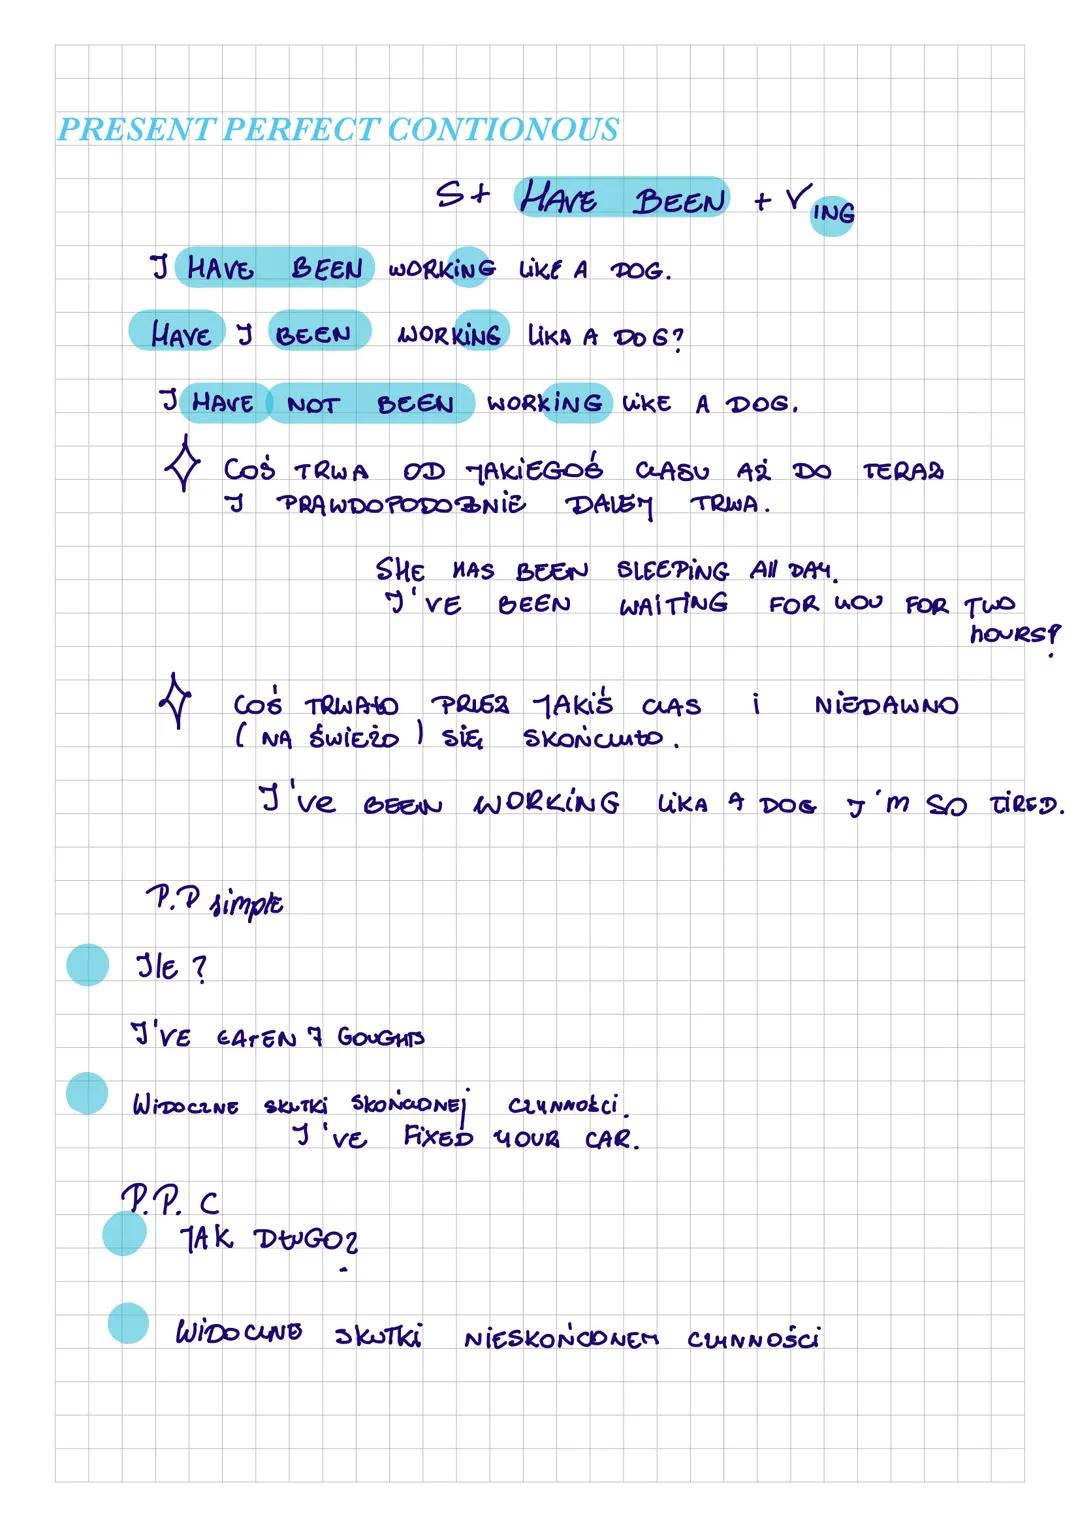 PRESENT PERFECT CONTIONOUS
S+ HAVE BEEN + V ING
I HAVE BEEN WORKING LIKE A DOG.
HAVE I BEEN WORKING LIKA A DOG?
I HAVE NOT BEEN WORKING LIKE A DOG.
COŚ TRWA OD JAKIEGOŚ CZASU AŻ DO TERAZ
I PRAWDOPODOBNIE DALEJ TRWA.
SHE HAS BEEN SLEEPING All DAY.
I'VE BEEN WAITING FOR YOU FOR TWO
HOURS?
COŚ TRWAŁO PRZEZ JAKIŚ CZAS i NIEDAWNO
( NA ŚWIEŻO ) SIĘ SKOŃCZYŁO.
I've BEEN WORKING LIKA A DOG I'M SO TIRED.
P.P simple
IlE ?
I'VE EATEN 7 GOUGHTS
WIDOCZNE SKUTKI SKOŃCZONEj CZYNNOŚCI.
I'VE FIXED YOUR CAR.
P.P. C
JAK DŁUGO?
WIDOCZNE SKUTKI NIESKOŃCZONEJ CZYNNOŚCI